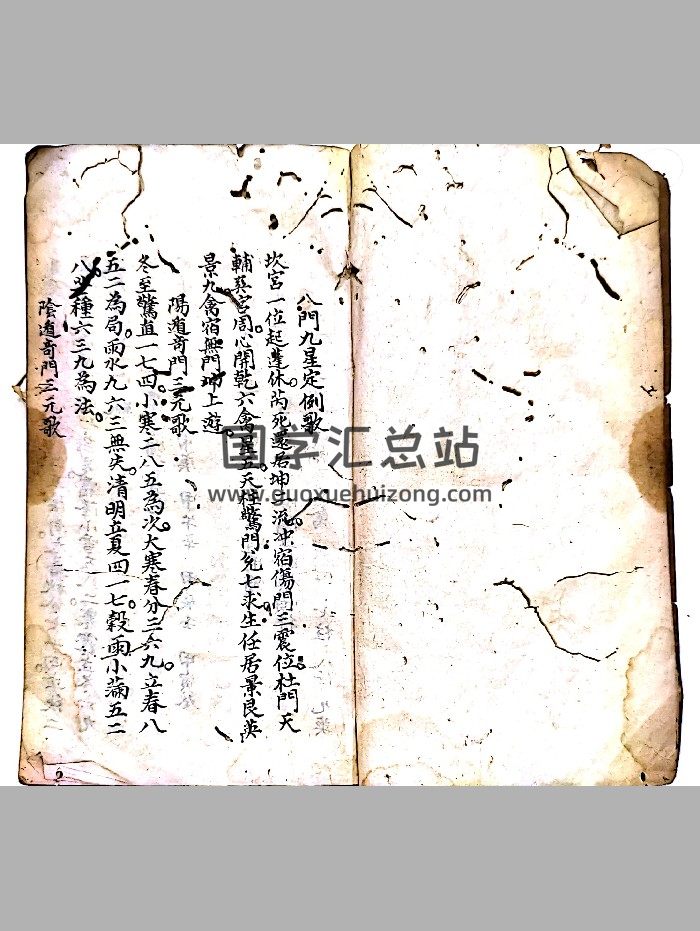 八門九星定例歌
坎宮一位起蓬休芮死還居坤二流冲宿傷門三震位杜門天
輔巽宮周心開乾六禽星五天柱驚門兌七求生任居景艮英
景九禽宿無門坤上遊
陽遁奇門三元歌
冬至驚直一七四小寒二八五為次大寒春分三六九立春八
五二為局雨水九六三無失清明立夏四一七穀雨小滿五二
八芒種六三九為法
陰遁奇門三元歌
国学汇总站
www.guoxuehuizong.com